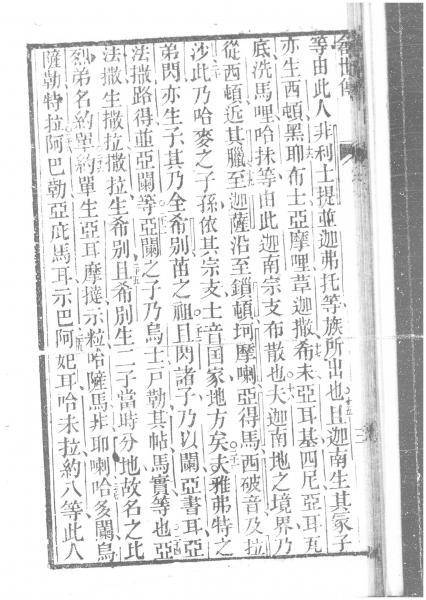 創世傳
等由此人非利士提並迦弗托等族所出也且迦南生其冢子
亦生西頓黑耶布士亞摩哩革迦撒希未亞耳基四尼亞耳瓦
底洗馬哩哈抹等由此迦南宗支布散也夫迦南地之境界乃
從西頓近其臘至迦薩沿至鎖頓坷摩喇亞得馬西破音及拉
沙此乃哈麥之子孫依其宗支土音国家地方矣夫雅弗特之
弟閃亦生子其乃全希別苗之祖且閃諸子乃以闌亞書耳亞
法撒路得並亞闌等亞闌之子乃烏士戸勒其帖馬實等也亞
法撒生撒拉撒拉生希別且希別生二子當時分地故名之比
烈弟名約單約單生亞耳摩撻示粒哈薩馬非耶喇哈多闌烏
薩勒特拉阿巴勒亞庇馬耳示巴阿妃耳哈未拉約八等此人